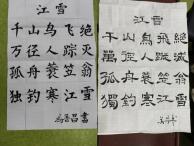 江雪
千山鸟飞绝
万径人踪灭
孤舟蓑笠翁
独钓寒江雪
江雪
千山鳥飛絶
萬徑人踪滅
孤舟蓑笠翁
獨釣寒江雪